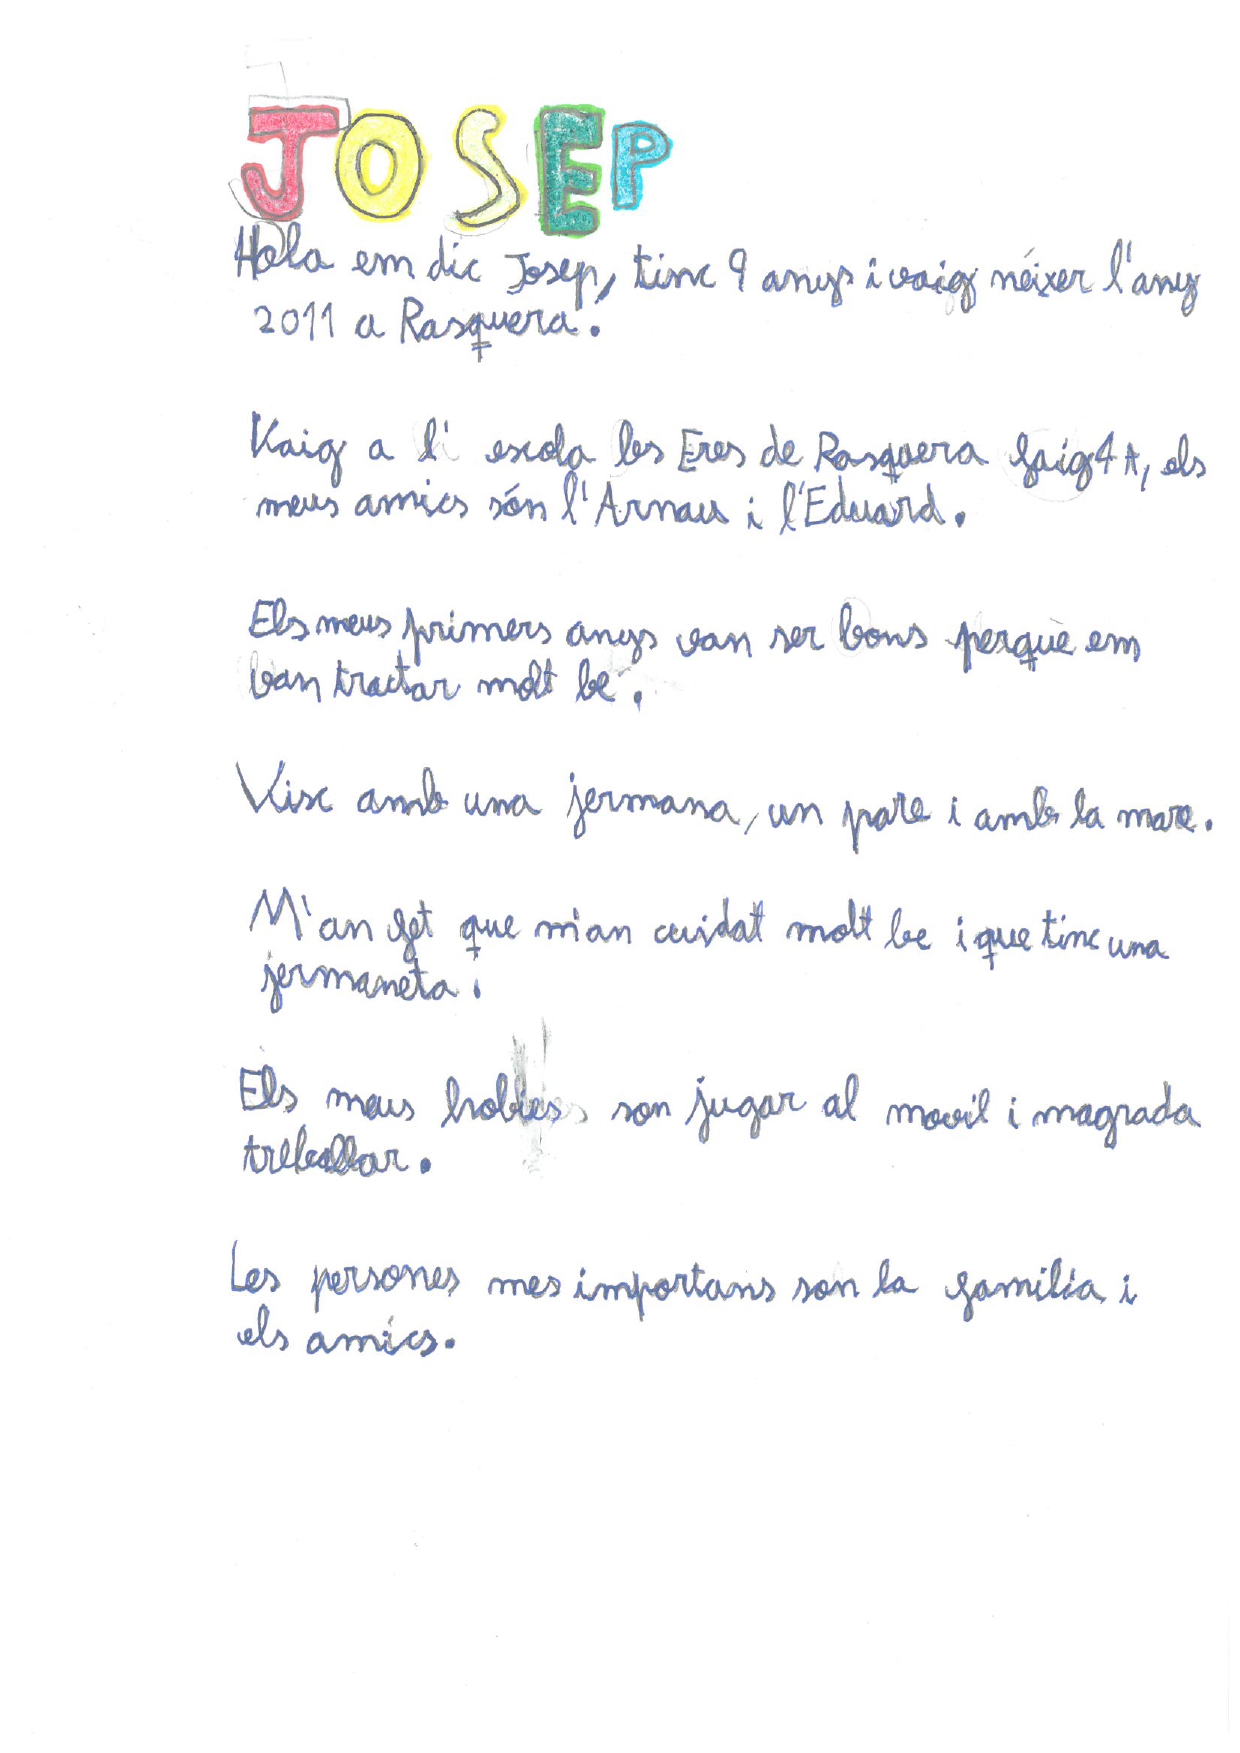 JOSEP
Hola em dic Josep, tinc 9 anys i vaig néixer l'any
2011 a Rasquera.
Vaig a l' escola les Eres de Rasquera faig 4t, els
meus amics són l'Arnau i l'Eduard.
Els meus primers anys van ser bons perquè em
van tractar molt bé.
Visc amb una jermana, un pare i amb la mare.
M'an fet que m'an cuidat molt be i que tinc una
jermaneta.
Els meus hobies son jugar al movil i magrada
treballar.
Les persones mes importans son la familia i
els amics.